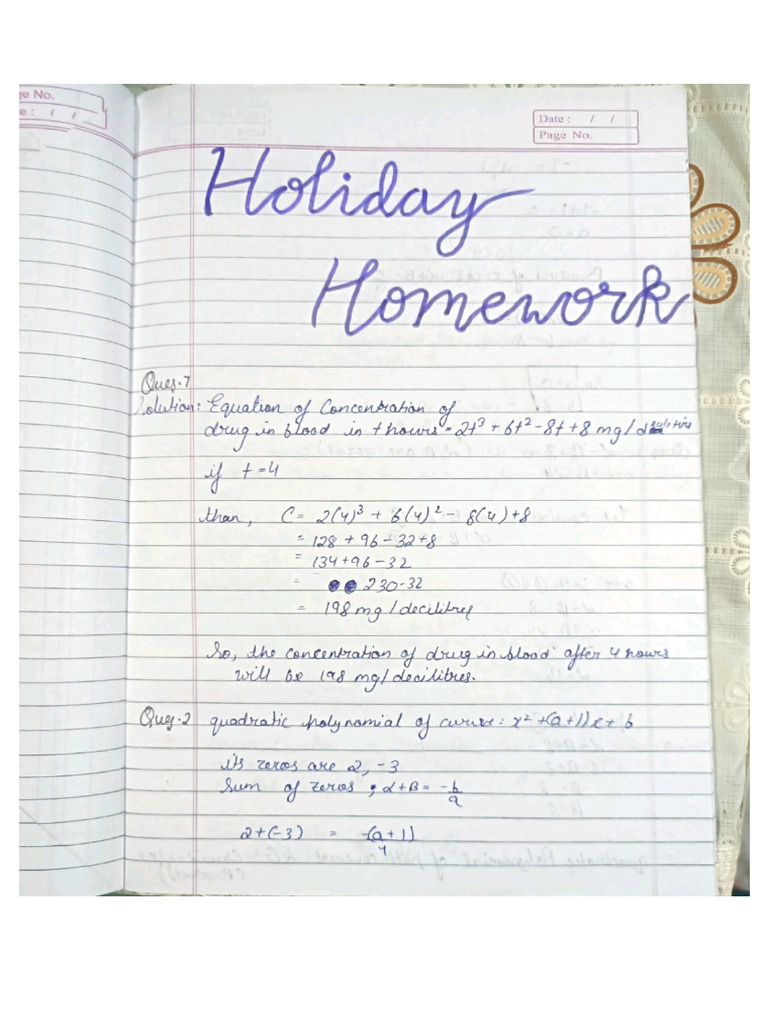 ge No.
e : / /
Date : / /
Page No.
Holiday
Homework
Ques.1
Solution: Equation of Concentration of
drug in blood in t hours = 2t³ + 6t² - 8t + 8 mg/d
if t = 4
than, C = 2(4)³ + 6(4)² - 8(4) + 8
= 128 + 96 - 32 + 8
= 134 + 96 - 32
= 230 - 32
= 198 mg/decilitres
So, the concentration of drug in blood after 4 hours
will be 198 mg/decilitres.
Ques.2 quadratic polynomial of curve: x² + (a+1)x + b
its zeros are 2, -3
Sum of zeros ; α+β = -b/a
2+(-3) = -(a+1)/1